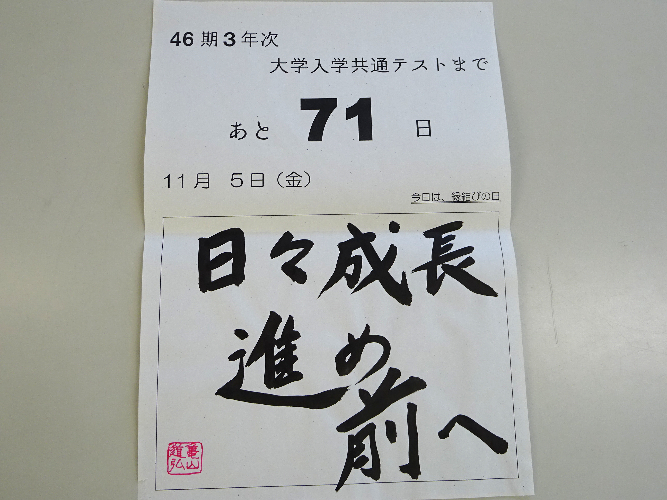 46期3年次
大学入学共通テストまで
あと 71 日
11月 5日（金）
今日は、縁結びの日
日々成長
進め
前へ